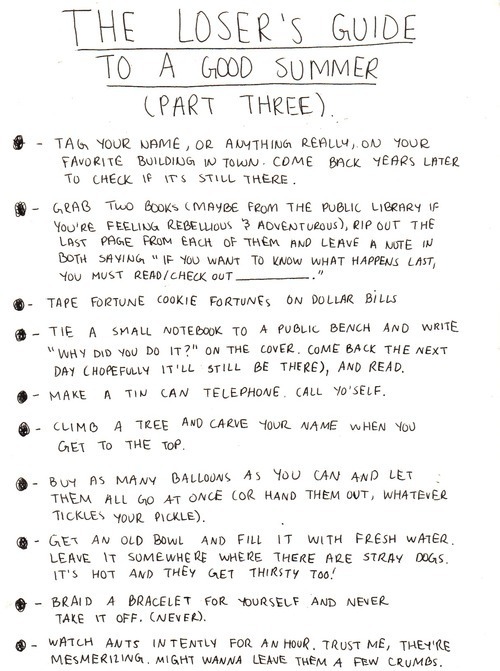 THE LOSER'S GUIDE
TO A GOOD SUMMER
(PART THREE).
- TAG YOUR NAME, OR ANYTHING REALLY, ON YOUR
FAVORITE BUILDING IN TOWN. COME BACK YEARS LATER
TO CHECK IF IT'S STILL THERE.
- GRAB TWO BOOKS (MAYBE FROM THE PUBLIC LIBRARY IF
YOU'RE FEELING REBELLIOUS & ADVENTUROUS), RIP OUT THE
LAST PAGE FROM EACH OF THEM AND LEAVE A NOTE IN
BOTH SAYING "IF YOU WANT TO KNOW WHAT HAPPENS LAST,
YOU MUST READ/CHECK OUT __________."
- TAPE FORTUNE COOKIE FORTUNES ON DOLLAR BILLS
- TIE A SMALL NOTEBOOK TO A PUBLIC BENCH AND WRITE
"WHY DID YOU DO IT?" ON THE COVER. COME BACK THE NEXT
DAY (HOPEFULLY IT'LL STILL BE THERE), AND READ.
- MAKE A TIN CAN TELEPHONE. CALL YO'SELF.
- CLIMB A TREE AND CARVE YOUR NAME WHEN YOU
GET TO THE TOP.
- BUY AS MANY BALLOONS AS YOU CAN AND LET
THEM ALL GO AT ONCE (OR HAND THEM OUT, WHATEVER
TICKLES YOUR PICKLE).
- GET AN OLD BOWL AND FILL IT WITH FRESH WATER.
LEAVE IT SOMEWHERE WHERE THERE ARE STRAY DOGS.
IT'S HOT AND THEY GET THIRSTY TOO!
- BRAID A BRACELET FOR YOURSELF AND NEVER
TAKE IT OFF. (NEVER).
- WATCH ANTS INTENTLY FOR AN HOUR. TRUST ME, THEY'RE
MESMERIZING. MIGHT WANNA LEAVE THEM A FEW CRUMBS.